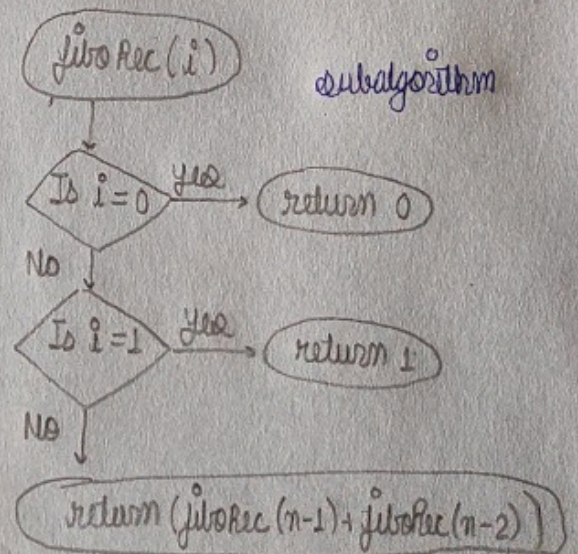 fiboRec(i)
subalgorithm
Is i=0
yes
return 0
NO
Is i=1
yes
return 1
NO
return(fiboRec(n-1)+fiboRec(n-2))